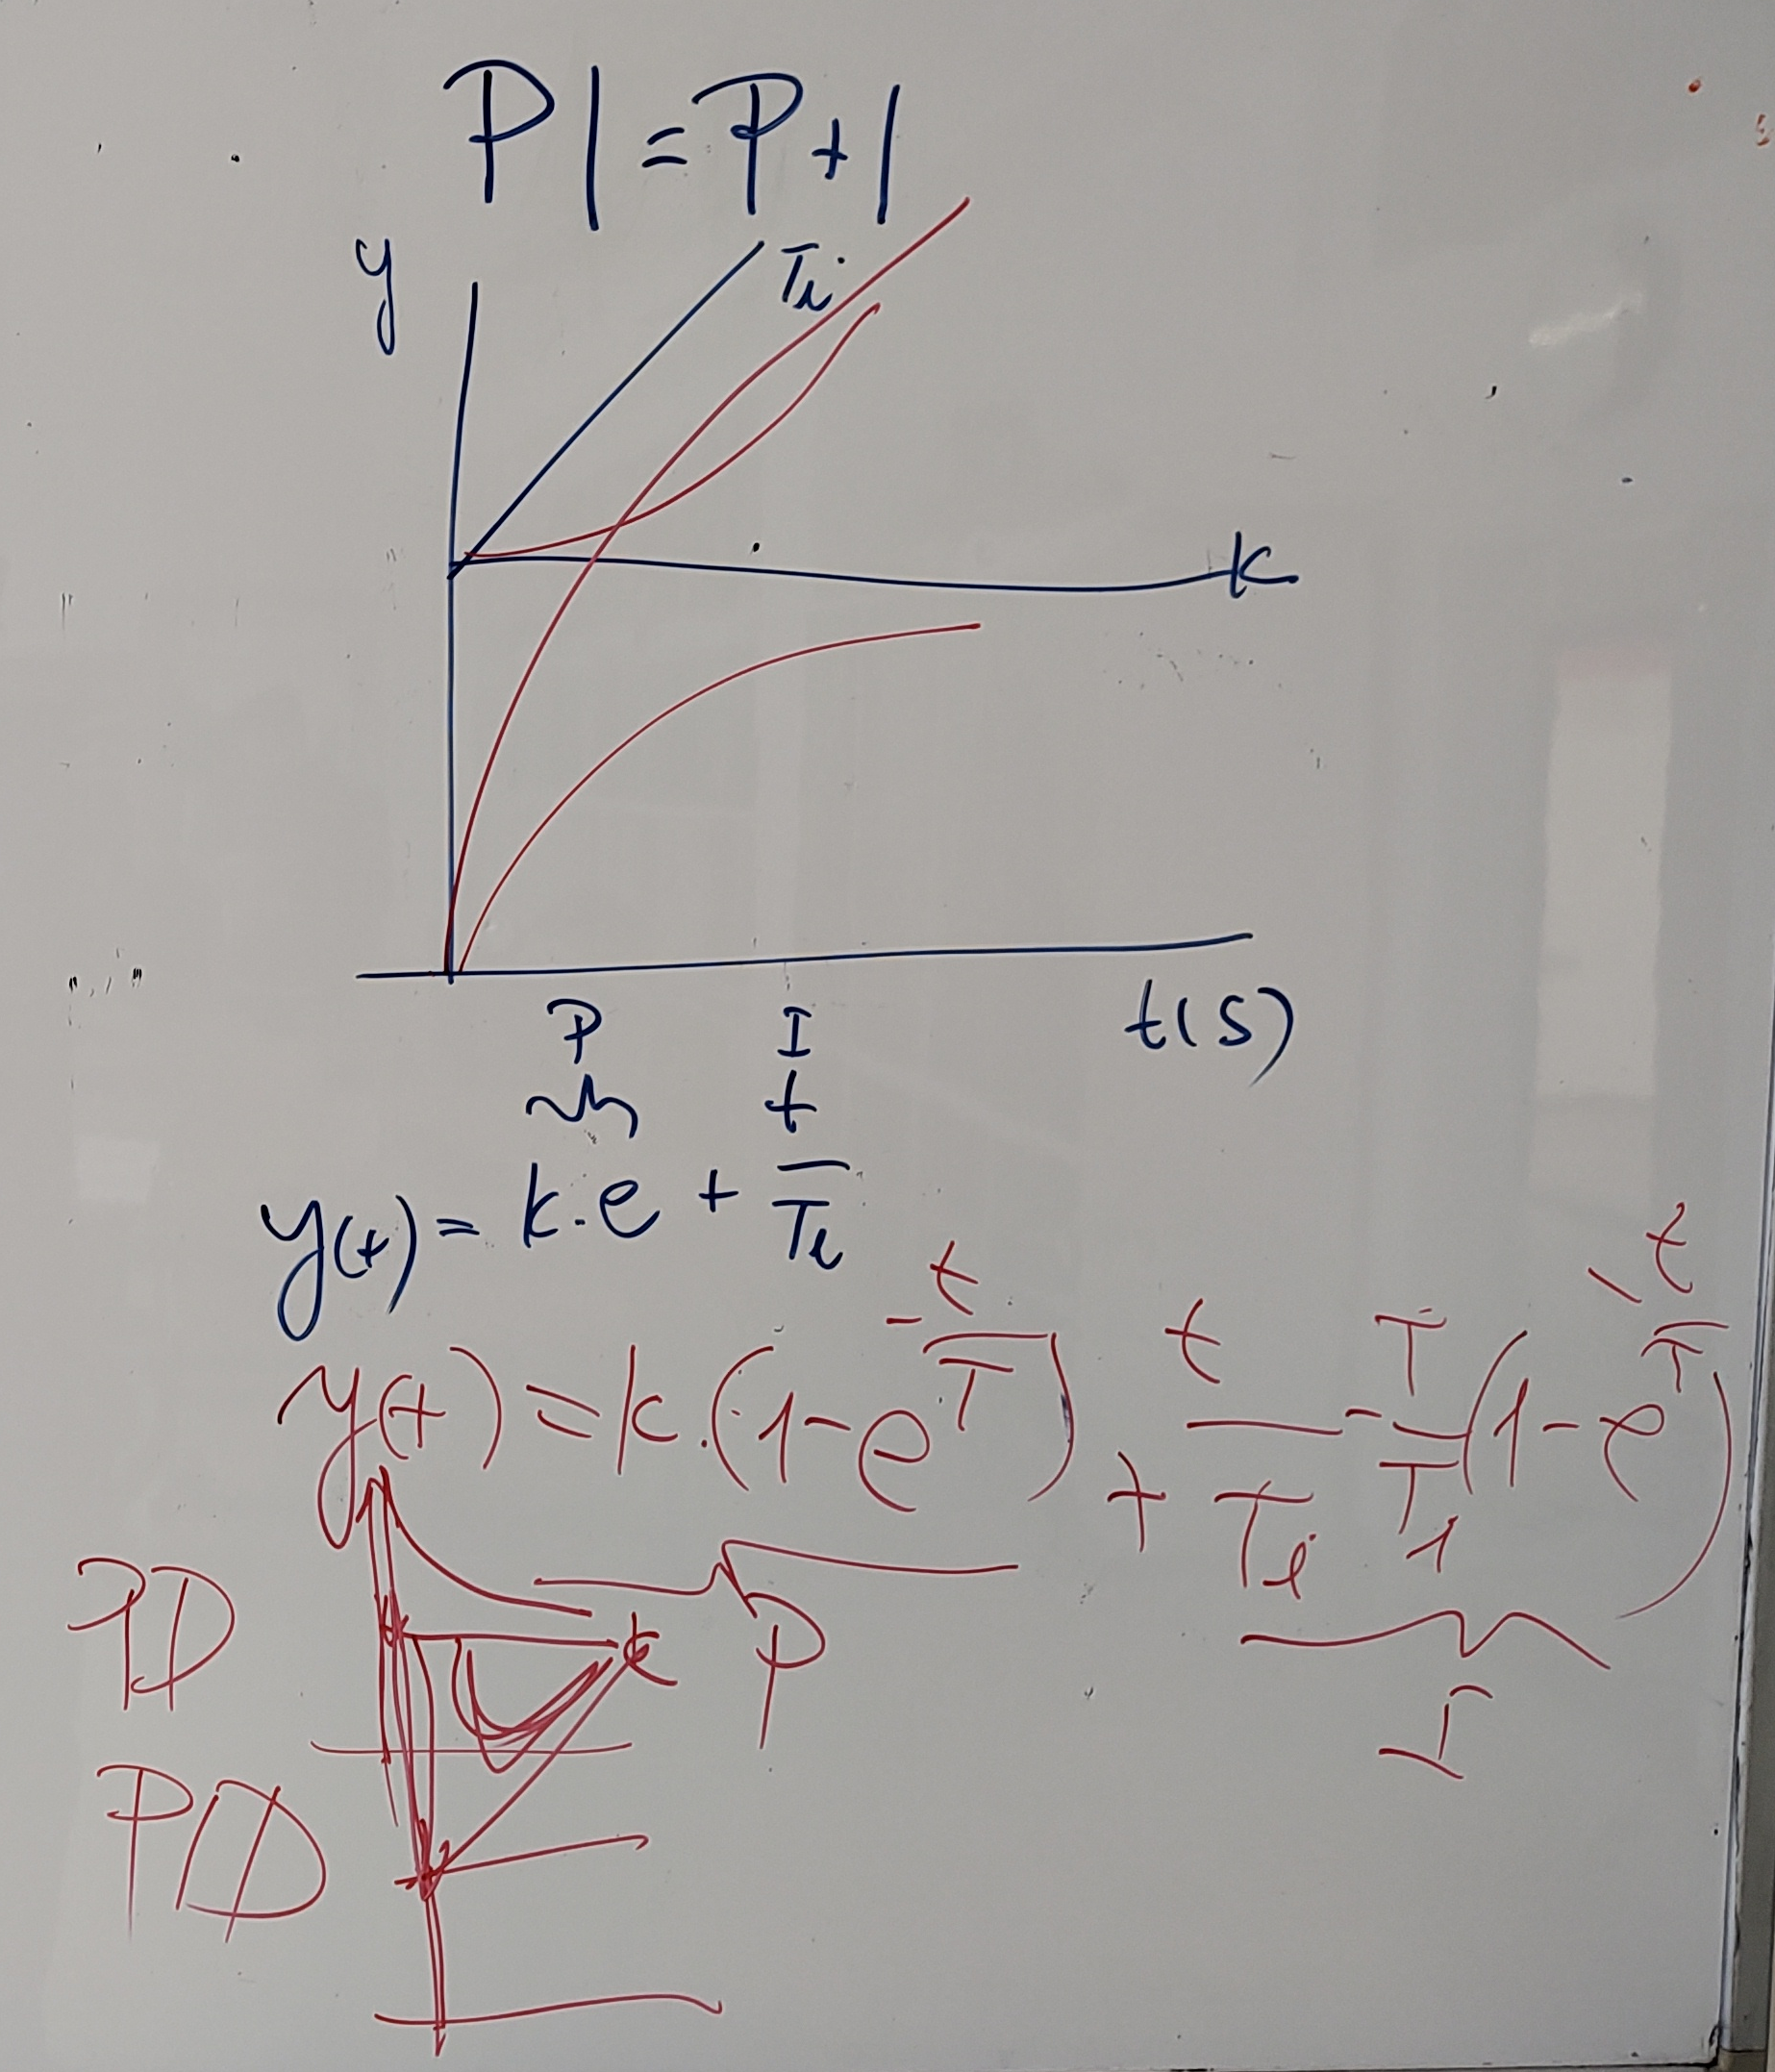 PI = P + I
y
Ti
K
t(s)
P I
y(t) = k.e + t/Ti
y(t) = k.(1-e^-t/T) + t/Ti - T/T1 (1-e^-t/T)
PD
k
P
I
PID